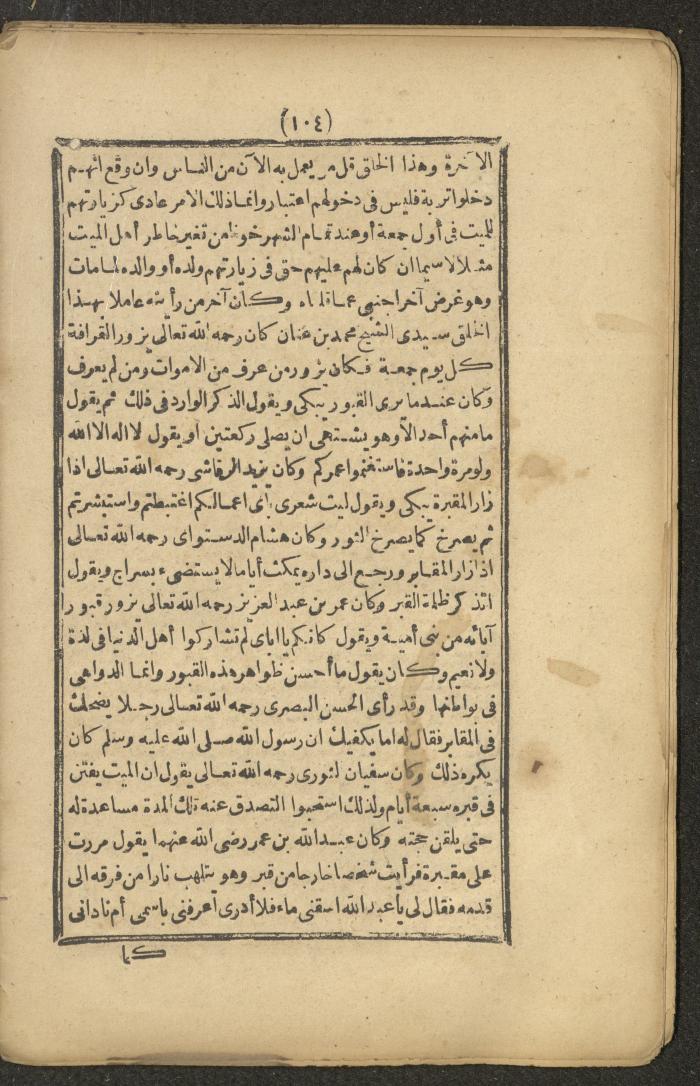 (١٠٤)
الآخرة وهذا الخلق قل من يعمل به الآن من الناس وان وقع انهم
دخلوا تربة فليس فى دخولهم اعتبار وانما ذلك لامر عادى كزيارتهم
للميت فى أول جمعة أو عند تمام الشهر خوفا من تغير خاطر أهل الميت
مثلا لاسيما ان كان لهم عليهم حق فى زيارتهم ولده أو والده لما مات
وهو غرض آخر اجنبى عما قلناه وكان آخر من رأيته عاملا بهذا
الخلق سيدى الشيخ محمد بن عنان كان رحمه الله تعالى يزور القرافة
كل يوم جمعة فكان يزور من عرف من الاموات ومن لم يعرف
وكان عندما يرى القبور يبكى ويقول الذكر الوارد فى ذلك ثم يقول
ما منهم أحد الا وهو يشتهى ان يصلى ركعتين أو يقول لا اله الا الله
ولو مرة واحدة فاستغنموا عمركم وكان يزيد الرقاشى رحمه الله تعالى اذا
زار المقبرة يبكى ويقول ليت شعرى بأى اعمالكم اغتبطتم واستبشرتم
ثم يصرخ كما يصرخ الثور وكان هشام الدستواى رحمه الله تعالى
اذا زار المقابر ورجع الى داره يمكث أياما لا يستضىء بسراج ويقول
اتذكر ظلمة القبر وكان عمر بن عبد العزيز رحمه الله تعالى يزور قبور
آبائه من بنى أمية ويقول كانكم يا اباى لم تشاركوا أهل الدنيا فى لذة
ولا نعيم وكان يقول ما أحسن ظواهر هذه القبور وانما الدواهى
فى بواطنها وقد رأى الحسن البصرى رحمه الله تعالى رجلا يضحك
فى المقابر فقال له اما يكفيك ان رسول الله صلى الله عليه وسلم كان
يكره ذلك وكان سفيان الثورى رحمه الله تعالى يقول ان الميت يفتن
فى قبره سبعة أيام ولذلك استحبوا التصدق عنه تلك المدة مساعدة له
حتى يلقن حجته وكان عبد الله بن عمر رضى الله عنهما يقول مررت
على مقبرة فرأيت شخصا خارجا من قبر وهو يتلهب نارا من فرقه الى
قدمه فقال لى يا عبد الله اسقنى ماء فلا أدرى أعرفنى باسمى أم نادانى
كما